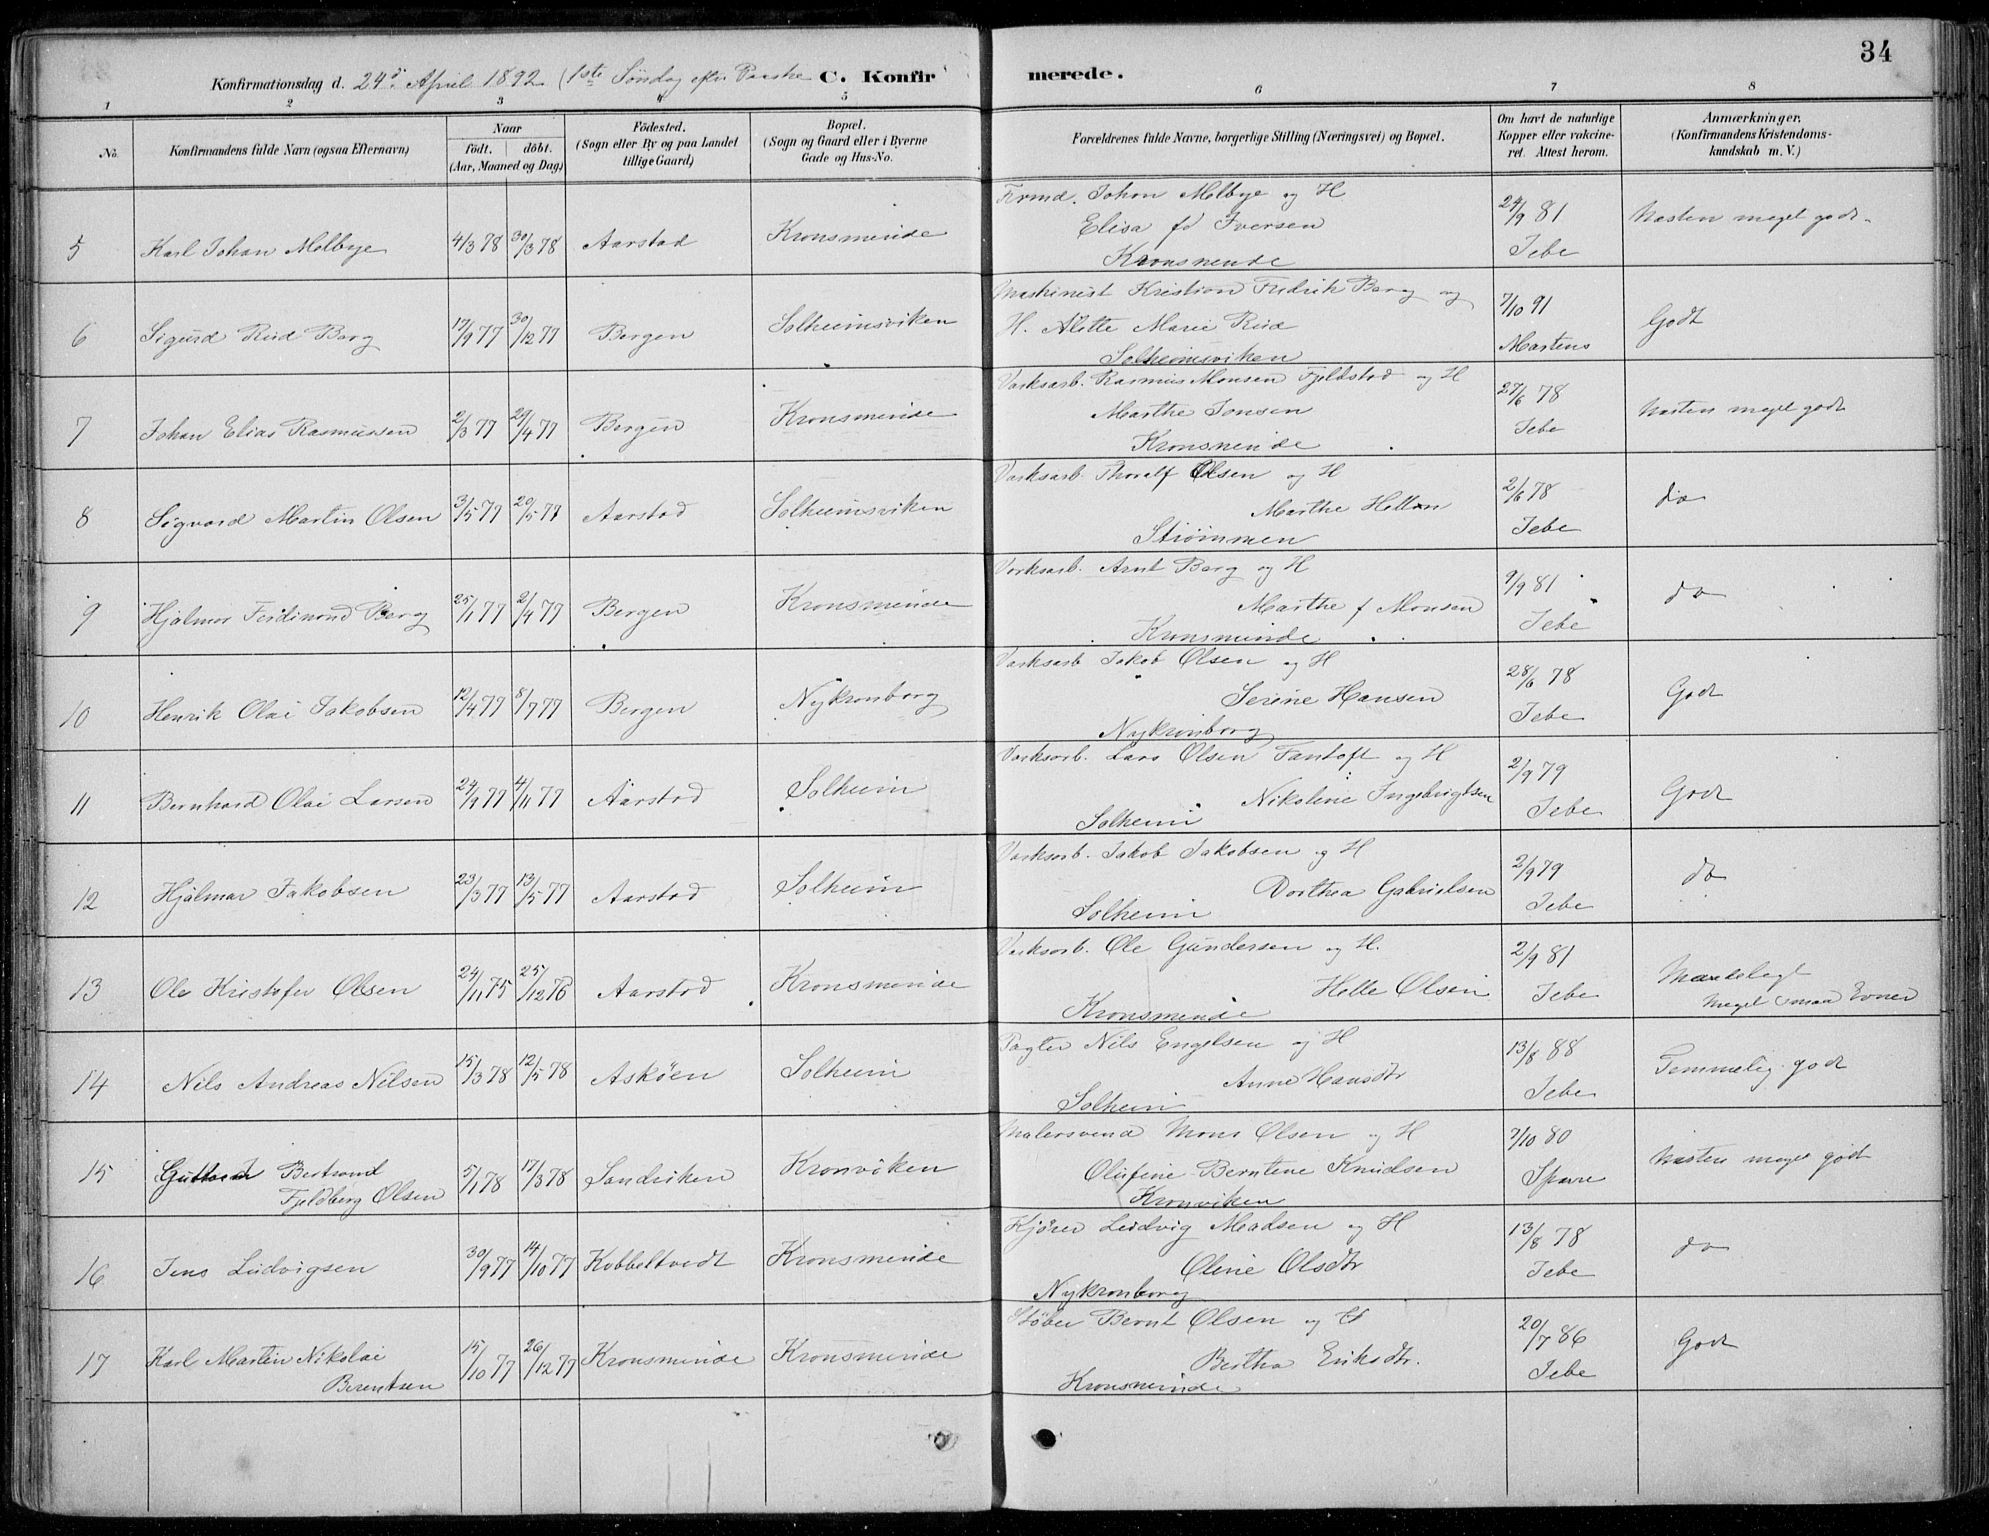 34
Konfirmationsdag d. 24de April 1892 (1ste Søndag efter Paaske C. Konfirmerede.
1 2 3 4 5 6 7 8
No. Konfirmandens fulde Navn (ogsaa Efternavn) Naar født. døbt. (Aar, Maaned og Dag) Fødested. (Sogn eller By og paa Landet tillige Gaard) Bopæl. (Sogn og Gaard eller i Byerne Gade og Hus-No. Forældrenes fulde Navne, borgerlige Stilling (Næringsvei) og Bopæl. Om havt de naturlige Kopper eller vakcineret. Attest herom. Anmærkninger. (Konfirmandens Kristendomskundskab m. V.)
5 Karl Johan Melbye 4/3 78 30/3 78 Aarstad Kronsminde Johan Melbye og H
Elisa fd Iversen
Kronsminde
24/9 81 Jebe
Næsten meget godt
6 Sigurd Riid Berg 17/9 77 30/12 77 Bergen Solheimsviken Maskinist Kristian Fredrik Berg og
H. Alette Marie Riid
Solheimsviken
7/10 91 Martens
Godt
7 Johan Elias Rasmussen 2/3 77 29/4 77 Bergen Kronsminde Værksarb. Rasmus Monsen Fjeldstad og H
Marthe Jonsen
Kronsminde
27/6 78 Jebe
Næsten meget godt
8 Sigvard Martin Olsen 3/5 77 20/5 77 Aarstad Solheimsviken Værksarb. Thoralf Olsen og H
Marthe
Strømmen
2/6 78 Jebe
do
9 Hjalmar Ferdinand Berg 25/1 77 2/4 77 Bergen Kronsminde Værksarb. Arnt Berg og H
Marthe f Monsen
Kronsminde
9/9 81 Jebe
do
10 Henrik Olai Jakobsen 12/4 77 8/7 77 Bergen Nykronborg Værksarb Jakob Olsen og H
Serine Hansen
Nykronborg
28/6 78 Jebe
Godt
11 Bernhard Olai Larsen 24/9 77 4/11 77 Aarstad Solheim Værksarb. Lars Olsen Fantoft og H
Nikoline Ingebrigtsen
Solheim
2/9 79 Jebe
Godt
12 Hjalmar Jakobsen 23/3 77 13/5 77 Aarstad Solheim Værksarb. Jakob Jakobsen og H
Dorthea Gabrielsen
Solheim
2/9 79 Jebe
do
13 Ole Kristofer Olsen 24/11 75 25/12 76 Aarstad Kronsminde Værksarb. Ole Gundersen og H.
Helle Olsen
Kronsminde
2/9 81 Jebe
Maadeligt
meget smaa Evner
14 Nils Andreas Nilsen 15/3 78 12/5 78 Askøen Solheim Pagter Nils Engelsen og H
Anne Hansdtr
Solheim
13/8 88 Jebe
Temmelig godt
15 Guttorm Bertrand
Fjeldberg Olsen 5/1 78 17/3 78 Sandviken Kronviken Malersvend Mons Olsen og H
Olufine Berntine Knudsen
Kronviken
7/10 80 Sparre
Næsten meget godt
16 Jens Ludvigsen 30/9 77 14/10 77 Kobbeltvedt Kronsminde Kjører Ludvig Madsen og H
Oline Olsdtr
Nykronborg
13/8 78 Jebe
do
17 Karl Martin Nikolai
Berentsen 15/10 77 26/12 77 Kronsminde Kronsminde Støber Bernt Olsen og H
Bertha Eriksdtr.
Kronsminde
20/7 86 Jebe
Godt